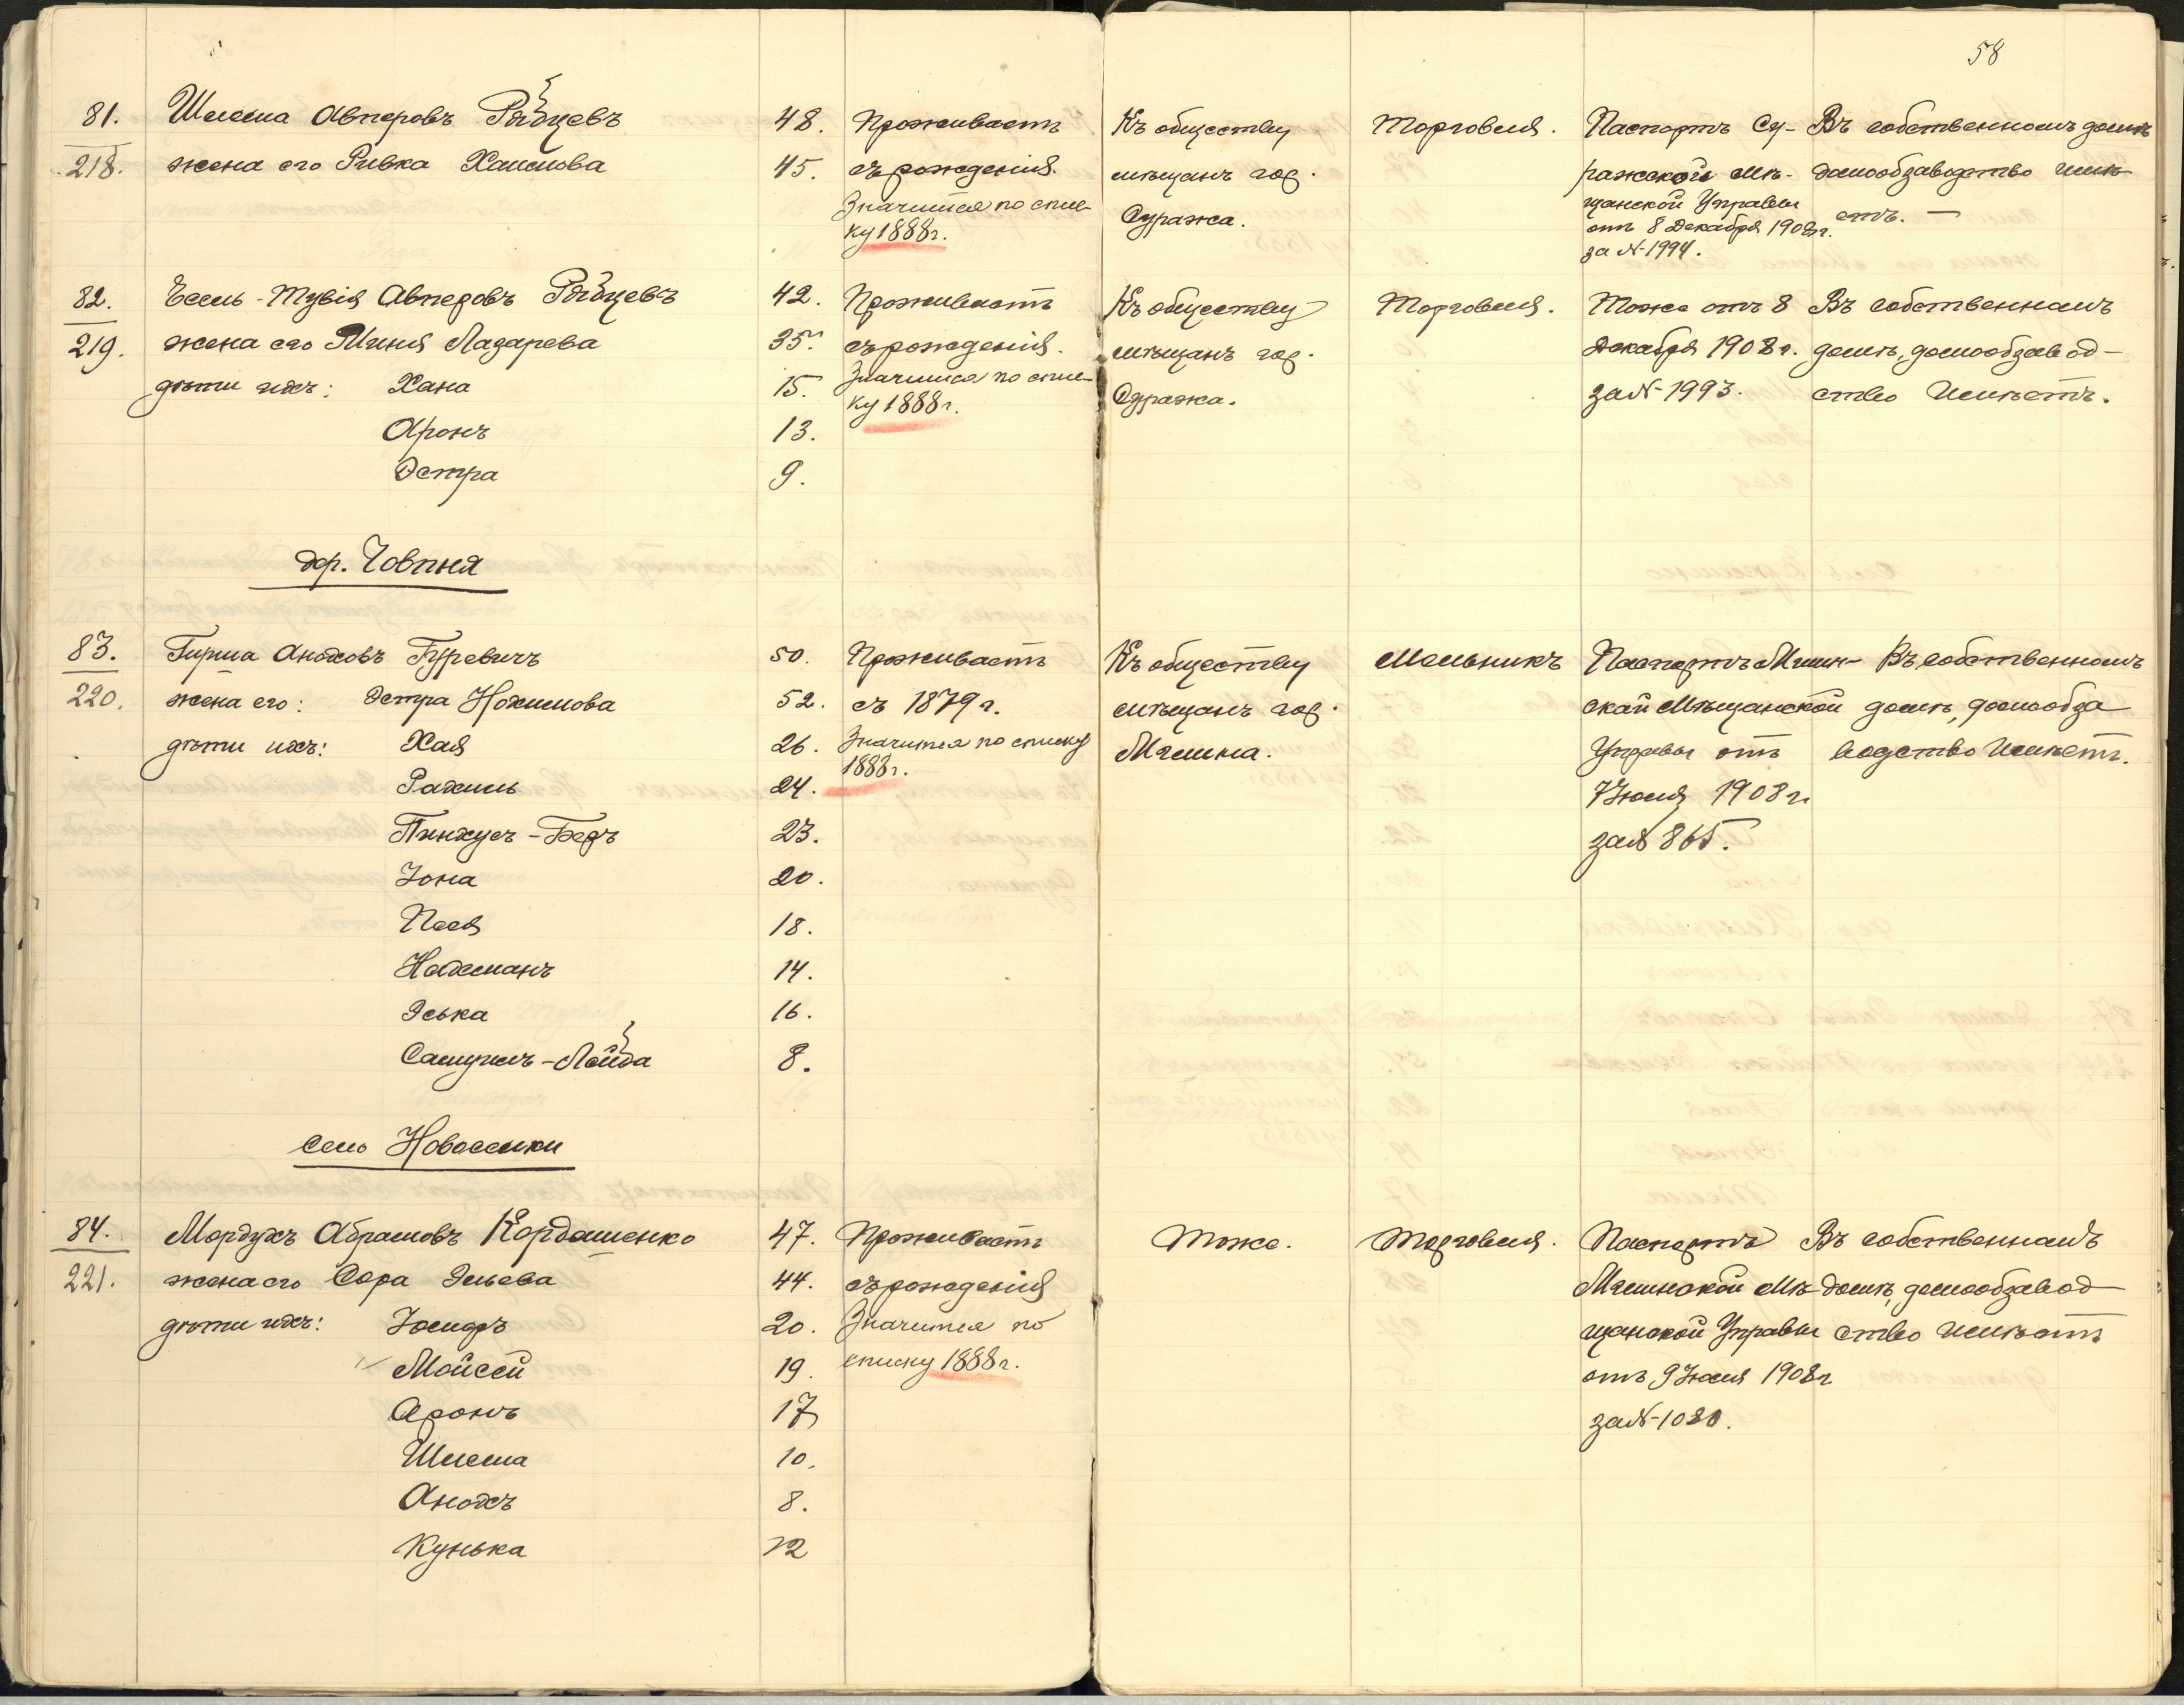 58
81. Шлема Авнеровъ Рябцевъ 48. Проживаетъ Къ обществу Торговля. Паспортъ Су- Въ собственномъ домѣ
218. жена его Ривка Хаимова 45. съ рожденія. мѣщанъ гор. ражской Мѣ- домообзаводство имѣ-
Значится по спис- Суража. щанской Управы етъ. —
ку 1888 г. отъ 8 Декабря 1908 г.
за №-1994.
82. Есель-Тувія Авнеровъ Рябцевъ 42. Проживаетъ Къ обществу Торговля. Тоже отъ 8 Въ собственномъ
219. жена его Миня Лазарева 35. съ рожденія. мѣщанъ гор. Декабря 1908 г. домѣ, домообзавод-
дѣти ихъ: Хана 15. Значится по спис- Суража. за №-1993. ство Имѣетъ.
ку 1888 г.
Аронъ 13.
Эстра 9.
дер. Човпня
83. Гирша Аноховъ Гуревичъ 50. Проживаетъ Къ обществу Мельникъ Паспортъ Мглин- Въ собственномъ
220. жена его: Эстра Нохимова 52. съ 1879 г. мѣщанъ гор. ской Мѣщанской домѣ, домообза
дѣти ихъ: Хая 26. Значится по списку Мглина. Управы отъ водство Имѣетъ.
1888 г.
Рахиль 24. 7 Іюля 1908 г.
Пинхусъ-Беръ 23. за № 865.
Іона 20.
Песя 18.
Нахманъ 14.
Эська 16.
Самуилъ-Лейба 8.
село Новоселки
84. Мордухъ Абрамовъ Кордашенко 47. Проживаетъ Тоже. Торговля. Паспортъ Въ собственномъ
221. жена его Сора Эльева 44. съ рожденія Мглинской Мѣ- домѣ, домообзавод-
дѣти ихъ: Іосифъ 20. Значится по щанской Управы ство имѣетъ
Мойсей 19. списку 1888 г. отъ 9 Іюля 1908 г
Аронъ 17 за №-1080.
Шлема 10.
Анохъ 8.
Кунька 12